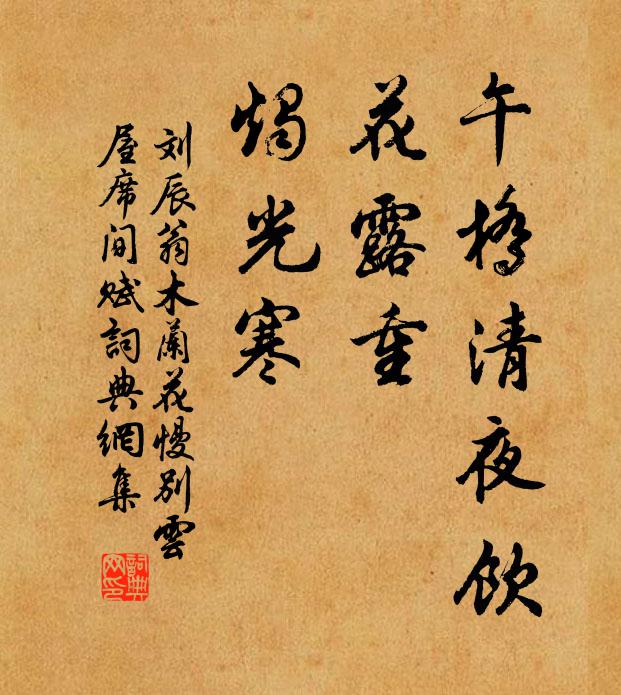 午橋清夜飲
花露重
燭光寒
刘辰翁木蘭花慢别雲
屋席間賦詞典網集
詞典网印